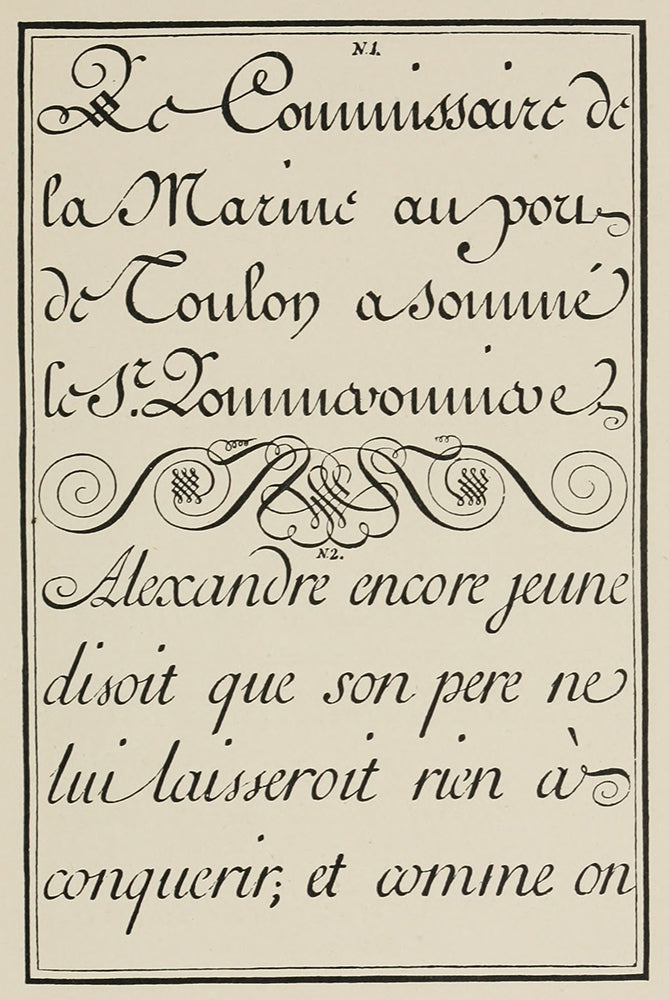 N.1.
Le Commissaire de
la Marine au port
de Toulon a sommé
le S.r
N.2.
Alexandre encore jeune
disoit que son pere ne
lui laisseroit rien à
conquerir; et comme on